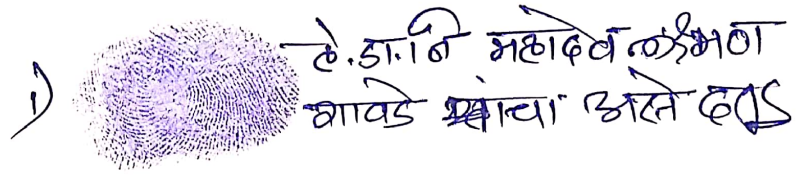 १) ले.डा.नि महादेव लक्ष्मण
गावडे यांचा असे दस्तु